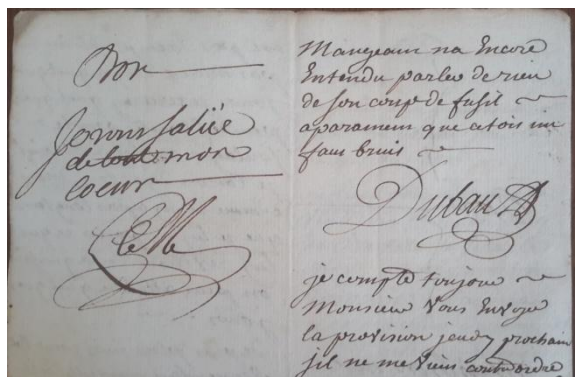 Bon
Je vous salüe
de tout mon
Coeur
Mangeam na Encore
Entendu parler de rien
de son coup de fusil
aparament que cetois un
faux bruis
Dubau
je compte toujour
Monsieur Vous Envoye
la provision jeudy prochain
sil ne me viens contrordre